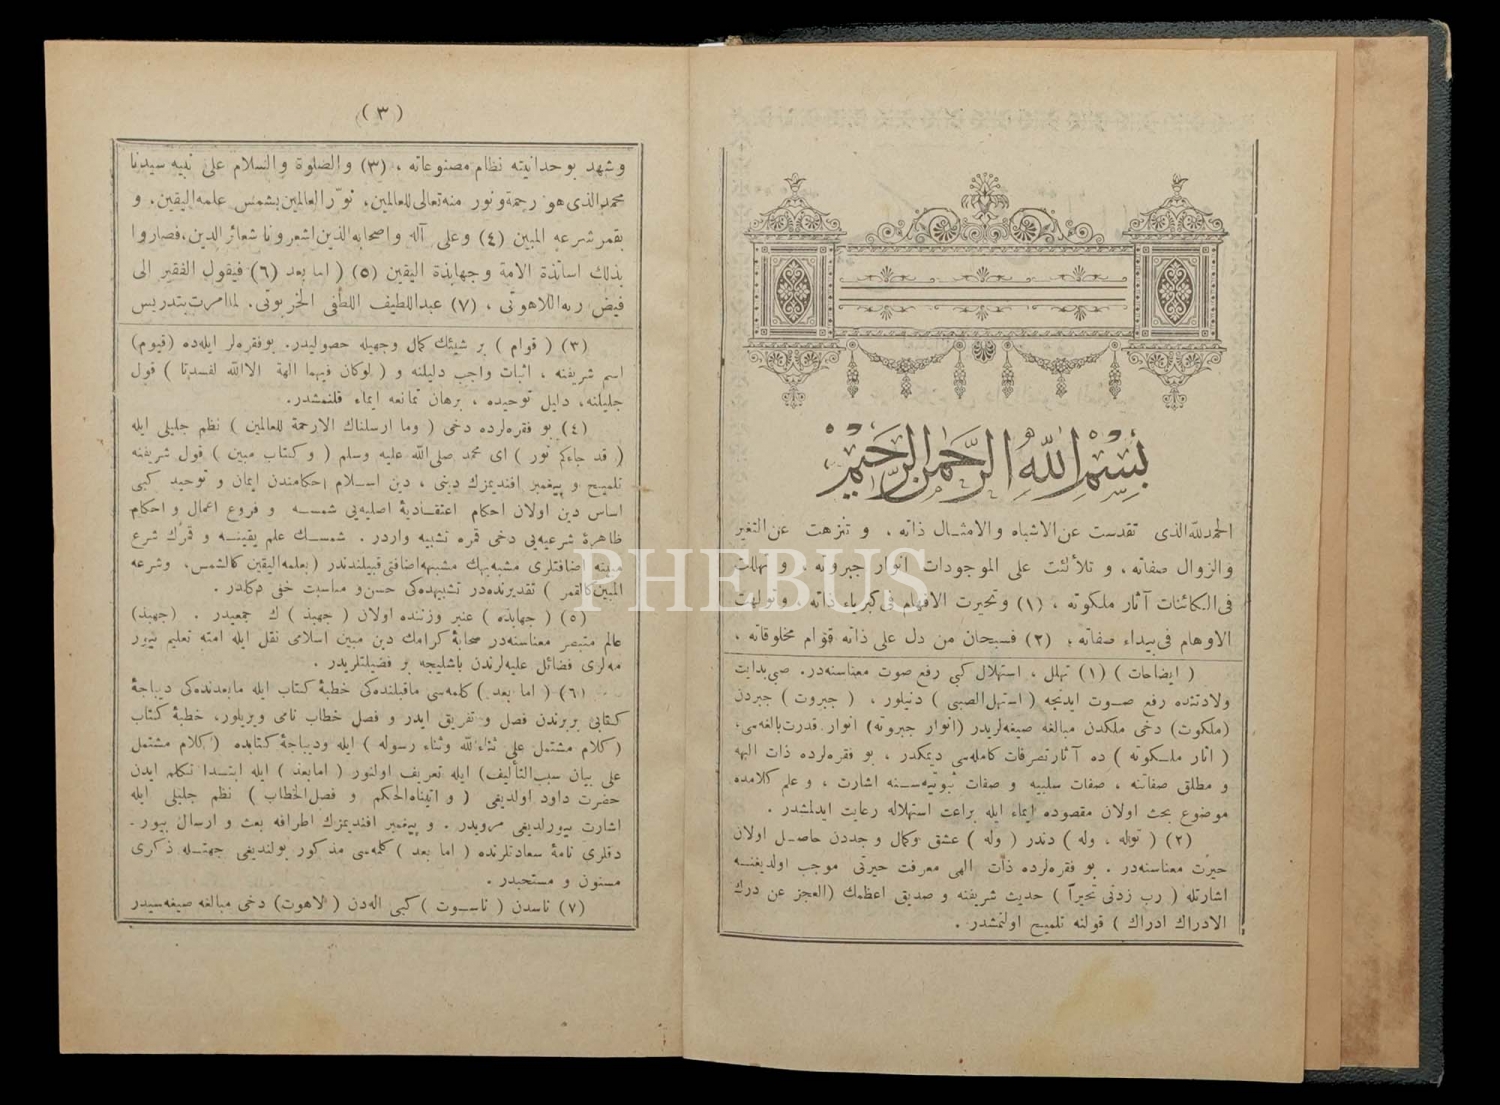 بسم الله الرحمن الرحيم
الحمدلله الذى تقدست عن الاشباه والامثال ذاته ، و تنزهت عن التغير
والزوال صفاته ، و تلألئت على الموجودات انوار جبروته ، و تهللت
فى الكائنات آثار ملكوته ، (١) وتحيرت الافهام فى كبرياء ذاته ، و تولهت
الاوهام فى بيداء صفاته ، (٢) فسبحان من دل على ذاته قوام مخلوقاته ،
( ايضاحات ) (١) تهلل ، استهلال كبى رفع صوت معناسنه در. صبى بدايت
ولادتنده رفع صوت ايدنجه ( استهل الصبى ) دنيلور ، ( جبروت ) جبردن
(ملكوت) دخى ملكدن مبالغه صيغه لريدر (انوار جبروته) انوار قدرت بالغه سى،
( اثار ملكوته ) ده آثار تصرفات كامله سى ديمكدر ، بو فقره لرده ذات الهيه
و مطلق صفاتنه ، صفات سلبيه و صفات ثبوتيه سنه اشارت ، و علم كلامده
موضوع بحث اولان مقصوده ايماء ايله براعت استهلاله رعايت ايدلمشدر .
(٢) ( توله ، وله ) دندر ( وله ) عشق وكمال و جددن حاصل اولان
حيرت معناسنه در . بو فقره لرده ذات الهى معرفت حيرتى موجب اولديغنه
اشارتله ( رب زدنى تحيرآ ) حديث شريفنه و صديق اعظمك (العجز عن درك
الادراك ادراك ) قولنه تلميح اولنمشدر .
( ٣ )
وشهد بوحدانيته نظام مصنوعاته ، (٣) والصلوة والسلام على نبيه سيدنا
محمد الذى هو رحمة ونور منه تعالى للعالمين، نور العالمين بشمس علمه اليقين، و
بقمر شرعه المبين (٤) وعلى آله واصحابه الذين اشعرونا شعائر الدين، فصاروا
بذلك اساتذة الامة وجهابذة اليقين (٥) ( اما بعد (٦) فيقول الفقير الى
فيض ربه اللاهوتى ، (٧) عبداللطيف اللطفى الخربوتى. لما امرت بتدريس
(٣) ( قوام ) بر شيئك كمال وجهيله حصوليدر. بوفقره لر ايله ده (قيوم)
اسم شريفنه ، اثبات واجب دليلنه و ( لوكان فيهما الهة الا الله لفسدتا ) قول
جليلنه، دليل توحيده ، برهان تمانعه ايماء قلنمشدر.
(٤) بو فقره لرده دخى ( وما ارسلناك الا رحمة للعالمين ) نظم جليلى ايله
( قد جاءكم نور ) اى محمد صلى الله عليه وسلم ( و كتاب مبين ) قول شريفنه
تلميح و پيغمبر افنديمزك دينى ، دين اسلام احكامندن ايمان و توحيد كبى
اساس دين اولان احكام اعتقادية اصليه يى شمسه و فروع اعمال و احكام
ظاهرۀ شرعيه يى دخى قمره تشبيه واردر . شمسك علم يقينه و قمرك شرع
مبينه اضافتلرى مشبه بهك مشبهه اضافتى قبيلندندر (بعلمه اليقين كالشمس، وشرعه
المبين كالقمر ) تقديرنده در تشبيهده كى حسن و مناسبت خفى دكلدر .
(٥) ( جهابذه ) عنبر وزننده اولان ( جهبذ ) ك جمعيدر . (جهبذ)
عالم متبصر معناسنه در صحابۀ كرامك دين مبين اسلامى نقل ايله امته تعليم بيور
مه لرى فضائل عليه لرندن باشليجه بر فضيلتلريدر .
(٦) ( اما بعد ) كلمه سى ماقبلنده كى خطبۀ كتاب ايله مابعدنده كى ديباجۀ
كتابى بربرندن فصل و تفريق ايدر و فصل خطاب نامى ويريلور، خطبۀ كتاب
( كلام مشتمل على ثناء لله وثناء رسوله ) ايله وديباجۀ كتابده ( كلام مشتمل
على بيان سبب التأليف) ايله تعريف اولنور ( اما بعد ) ايله ابتدا تكلم ايدن
حضرت داود اولديغى ( و اتيناه الحكم و فصل الخطاب ) نظم جليلى ايله
اشارت بيورلديغى مرويدر . و پيغمبر افنديمزك اطرافه بعث و ارسال بيور-
دقلرى نامۀ سعادتلرنده ( اما بعد ) كلمه سى مذكور بولنديغى جهتله ذكرى
مسنون و مستحبدر .
(٧) ناسدن ( ناسوت ) كبى الهدن ( لاهوت) دخى مبالغه صيغه سيدر
PHEBUS